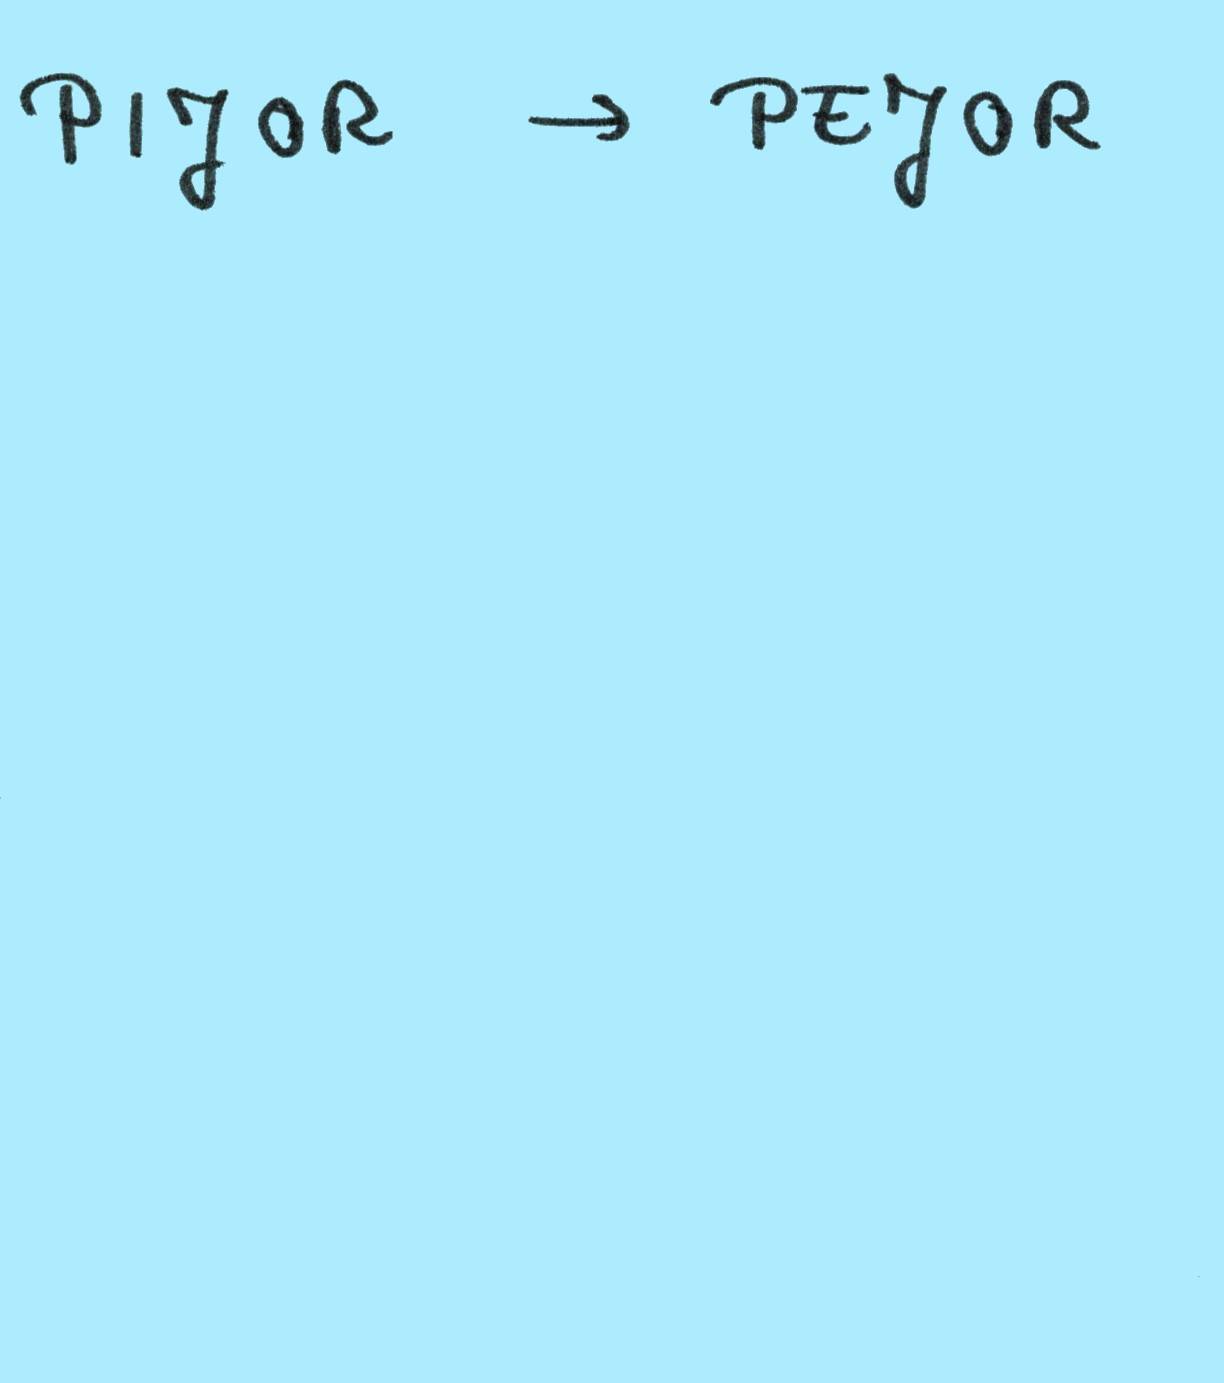 PIJOR → PEJOR